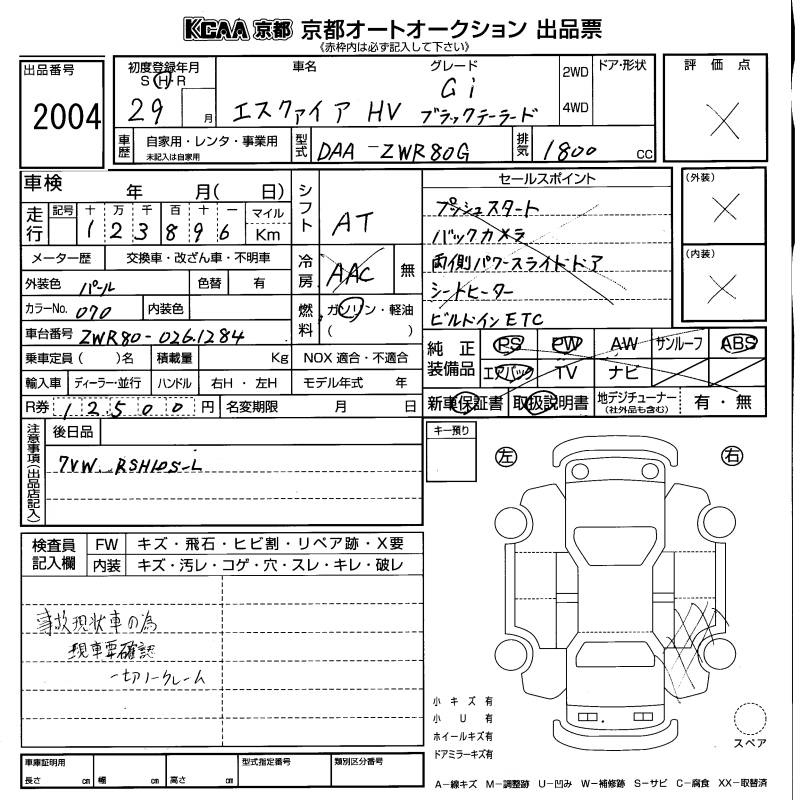 KCAA 京都 京都オートオークション 出品票
《赤枠内は必ず記入して下さい》
出品番号
2004
初度登録年月
S H R
29 月
車名
エスクァイア HV
グレード
Gi
ブラックテーラード
2WD
4WD
ドア・形状
評価点
車歴
自家用・レンタ・事業用
未記入は自家用
型式
DAA-ZWR80G
排気
1800 CC
車検 年 月( 日)
走行
記号 十 万 千 百 十 一 マイル
1 2 3 8 9 6 Km
シフト
AT
メーター歴 交換車・改ざん車・不明車
冷房
AAC 無
外装色 パール 色替 有
カラーNo. 070 内装色
燃料
ガソリン・軽油
( )
車台番号 ZWR80-0261284
乗車定員( )名 積載量 Kg NOX 適合・不適合
輸入車 ディーラー・並行 ハンドル 右H・左H モデル年式 年
R券 12500円 名変期限 月 日
セールスポイント
プッシュスタート
バックカメラ
両側パワースライドドア
シートヒーター
ビルドインETC
(外装)
(内装)
純正装備品
PS PW AW サンルーフ ABS
エアバック TV ナビ
新車保証書 取扱説明書 地デジチューナー(社外品も含む) 有・無
注意事項(出品店記入)
後日品
7VW RSH105-L
キー預り
左 右
検査員記入欄
FW キズ・飛石・ヒビ割・リペア跡・X要
内装 キズ・汚レ・コゲ・穴・スレ・キレ・破レ
事故現状車の為
現車要確認
一切ノークレーム
小キズ有
小U有
ホイールキズ有
ドアミラーキズ有
スペア
車庫証明用
長さ cm 幅 cm 高さ cm
型式指定番号
類別区分番号
A-線キズ M-調整跡 U-凹み W-補修跡 S-サビ C-腐食 XX-取替済